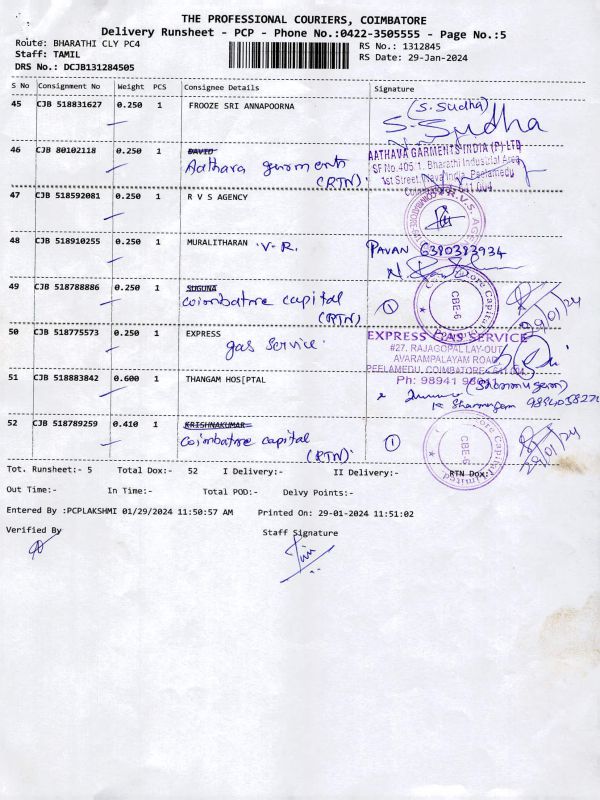 THE PROFESSIONAL COURIERS, COIMBATORE
Delivery Runsheet - PCP - Phone No.:0422-3505555 - Page No.:5
Route: BHARATHI CLY PC4
RS No.: 1312845
Staff: TAMIL
RS Date: 29-Jan-2024
DRS No.: DCJB131284505
S No Consignment No Weight PCS Consignee Details Signature
45 CJB 518831627 0.250 1 FROOZE SRI ANNAPOORNA
(S. Sudha)
S. Sudha
46 CJB 80102118 0.250 1 DAVID
Aathava garments
(RTN)
AATHAVA GARMENTS INDIA (P) LTD
SF No.405/1, Bharathi Industrial Area
1st Street, Nava India, Peelamedu
47 CJB 518592081 0.250 1 R V S AGENCY
R.V.S. AG
48 CJB 518910255 0.250 1 MURALITHARAN V.R.
PAVAN 6380383934
49 CJB 518788886 0.250 1 SUGUNA
Coimbatore capital
(RTN)
1
CBE-6
29/01/24
50 CJB 518775573 0.250 1 EXPRESS
gas service.
EXPRESS GAS SERVICE
#27, RAJAGOPAL LAY-OUT
AVARAMPALAYAM ROAD,
PEELAMEDU, COIMBATORE - 641 004
51 CJB 518883842 0.600 1 THANGAM HOS[PTAL
Ph: 98941
52 CJB 518789259 0.410 1 KRISHNAKUMAR
Coimbatore capital
(RTN)
1
CBE-6
29/01/24
Tot. Runsheet:- 5 Total Dox:- 52 I Delivery:- II Delivery:- RTN Dox:-
Out Time:- In Time:- Total POD:- Delvy Points:-
Entered By :PCPLAKSHMI 01/29/2024 11:50:57 AM Printed On: 29-01-2024 11:51:02
Verified By Staff Signature